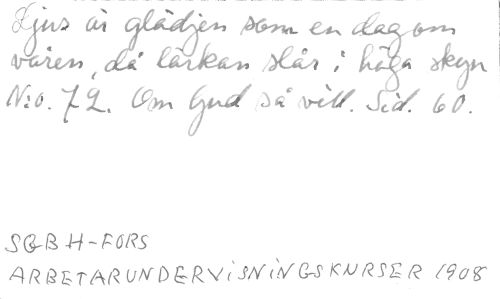 Ljus är glädjen som en dag om
våren, då lärkan slår i höga skyn
N:o. 72. Om Gud så vill. Sid. 60.
SGB H-FORS
ARBETARUNDERVISNINGSKURSER 1908